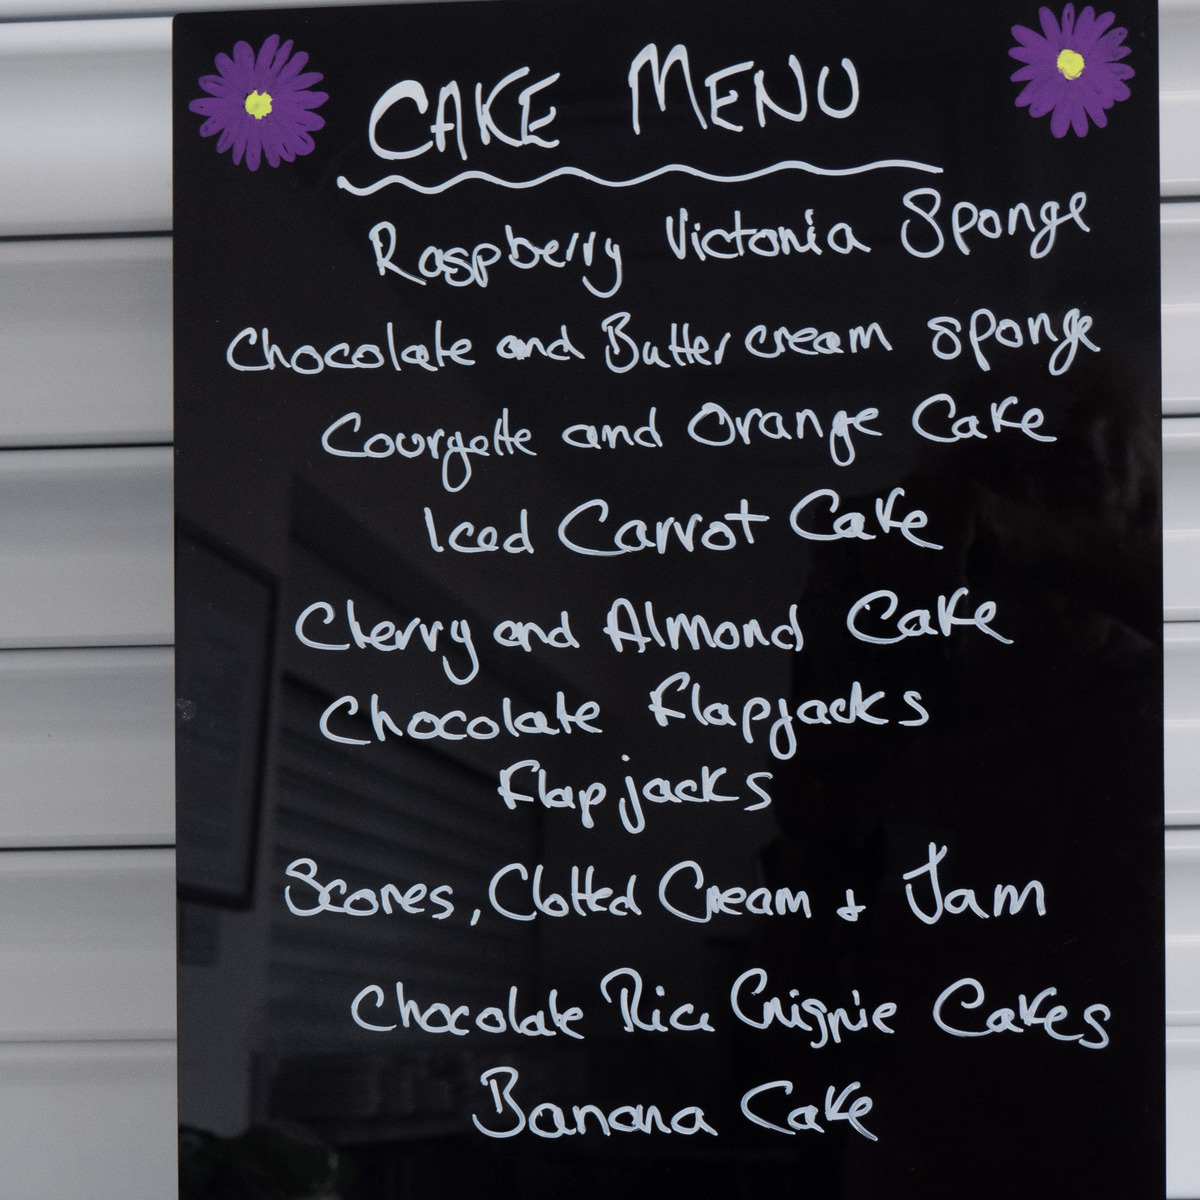 CAKE MENU
Raspberry Victoria Sponge
Chocolate and Buttercream sponge
Courgette and Orange Cake
Iced Carrot Cake
Cherry and Almond Cake
Chocolate Flapjacks
Flapjacks
Scones, Clotted Cream & Jam
Chocolate Rice Crispie Cakes
Banana Cake